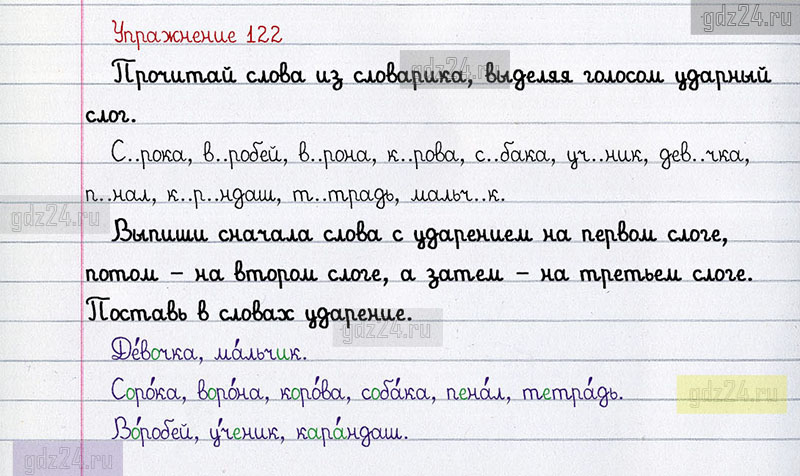 gdz24.ru
Упражнение 122
Прочитай слова из словарика, выделяя голосом ударный
gdz24.ru
слог.
С..рока, в..робей, в..рона, к..рова, с..бака, уч..ник, дев..чка,
п..нал, к..р..ндаш, т..традь, мальч..к.
gdz24.ru
Выпиши сначала слова с ударением на первом слоге,
потом – на втором слоге, а затем – на третьем слоге.
Поставь в словах ударение.
gdz24.ru
Де́вочка, ма́льчик.
Соро́ка, воро́на, коро́ва, соба́ка, пена́л, тетра́дь.
gdz24.ru
Во́робей, у́ченик, кара́ндаш.
gdz24.ru